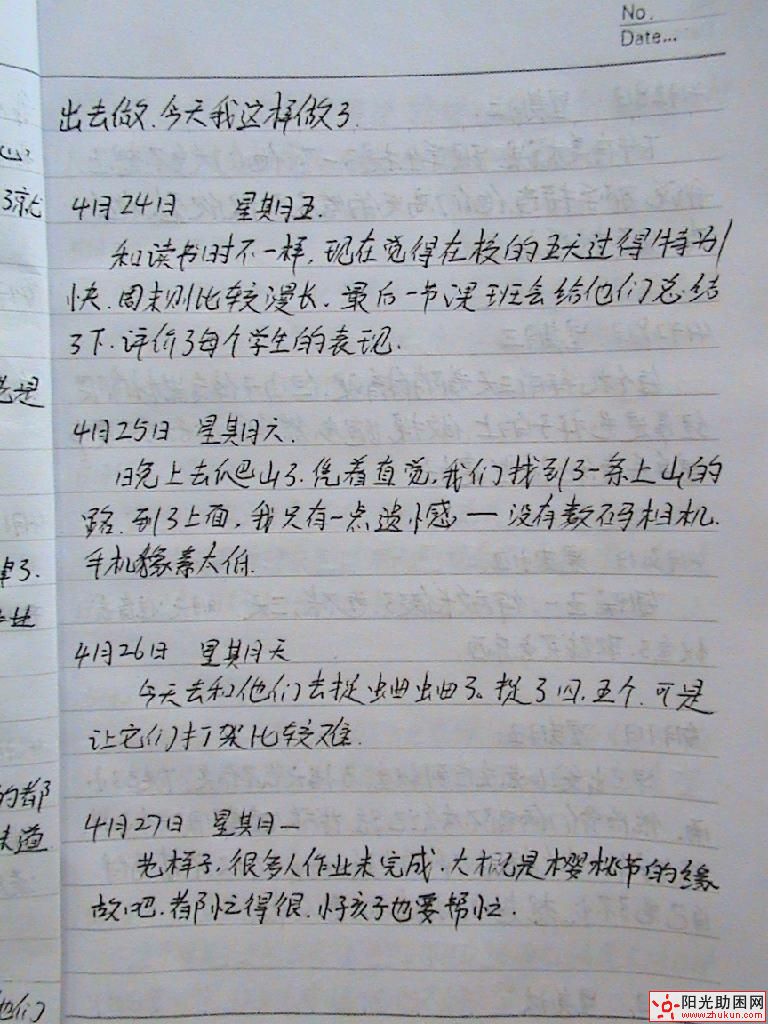 No.
Date...
出去做.今天我这样做了.
4月24日 星期五.
和读书时不一样,现在觉得在校的五天过得特别
快.周末则比较漫长.最后一节课班会给他们总结
了下.评价了每个学生的表现.
4月25日 星期六.
晚上去爬山了.凭着直觉,我们找到了一条上山的
路.到了上面,我只有一点遗憾——没有数码相机.
手机像素太低.
4月26日 星期天
今天去和他们去捉蛐蛐了.捉了四.五个.可是
让它们打架比较难.
4月27日 星期一
老样子.很多人作业未完成.大概是樱桃节的缘
故吧.都忙得很.小孩子也要帮忙.
了就
老是
掉了.
的都
味道
他们
阳光助困网
www.zhukun.com